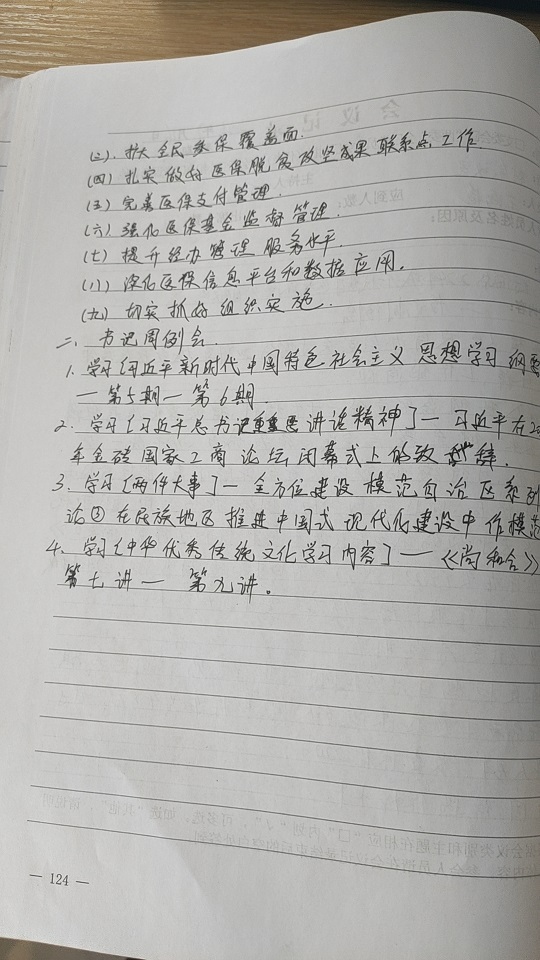 (三).扩大全民参保覆盖面.
(四)扎实做好医保脱贫攻坚成果联系点工作
(五)完善医保支付管理.
(六)强化医保基金监督管理.
(七)提升经办管理服务水平.
(八)深化医保信息平台和数据应用.
(九)切实抓好组织实施.
二、书记周例会.
1.学习[习近平新时代中国特色社会主义思想学习纲要
—第5期—第6期.
2.学习[习近平总书记重要讲话精神]—习近平在20
年金砖国家工商论坛闭幕式上的致辞.
3.学习[两件大事]—全方位建设模范自治区系列
论③在民族地区推进中国式现代化建设中作模范
4.学习[中华优秀传统文化学习内容]—《尚和合》
第七讲—第九讲.
— 124 —